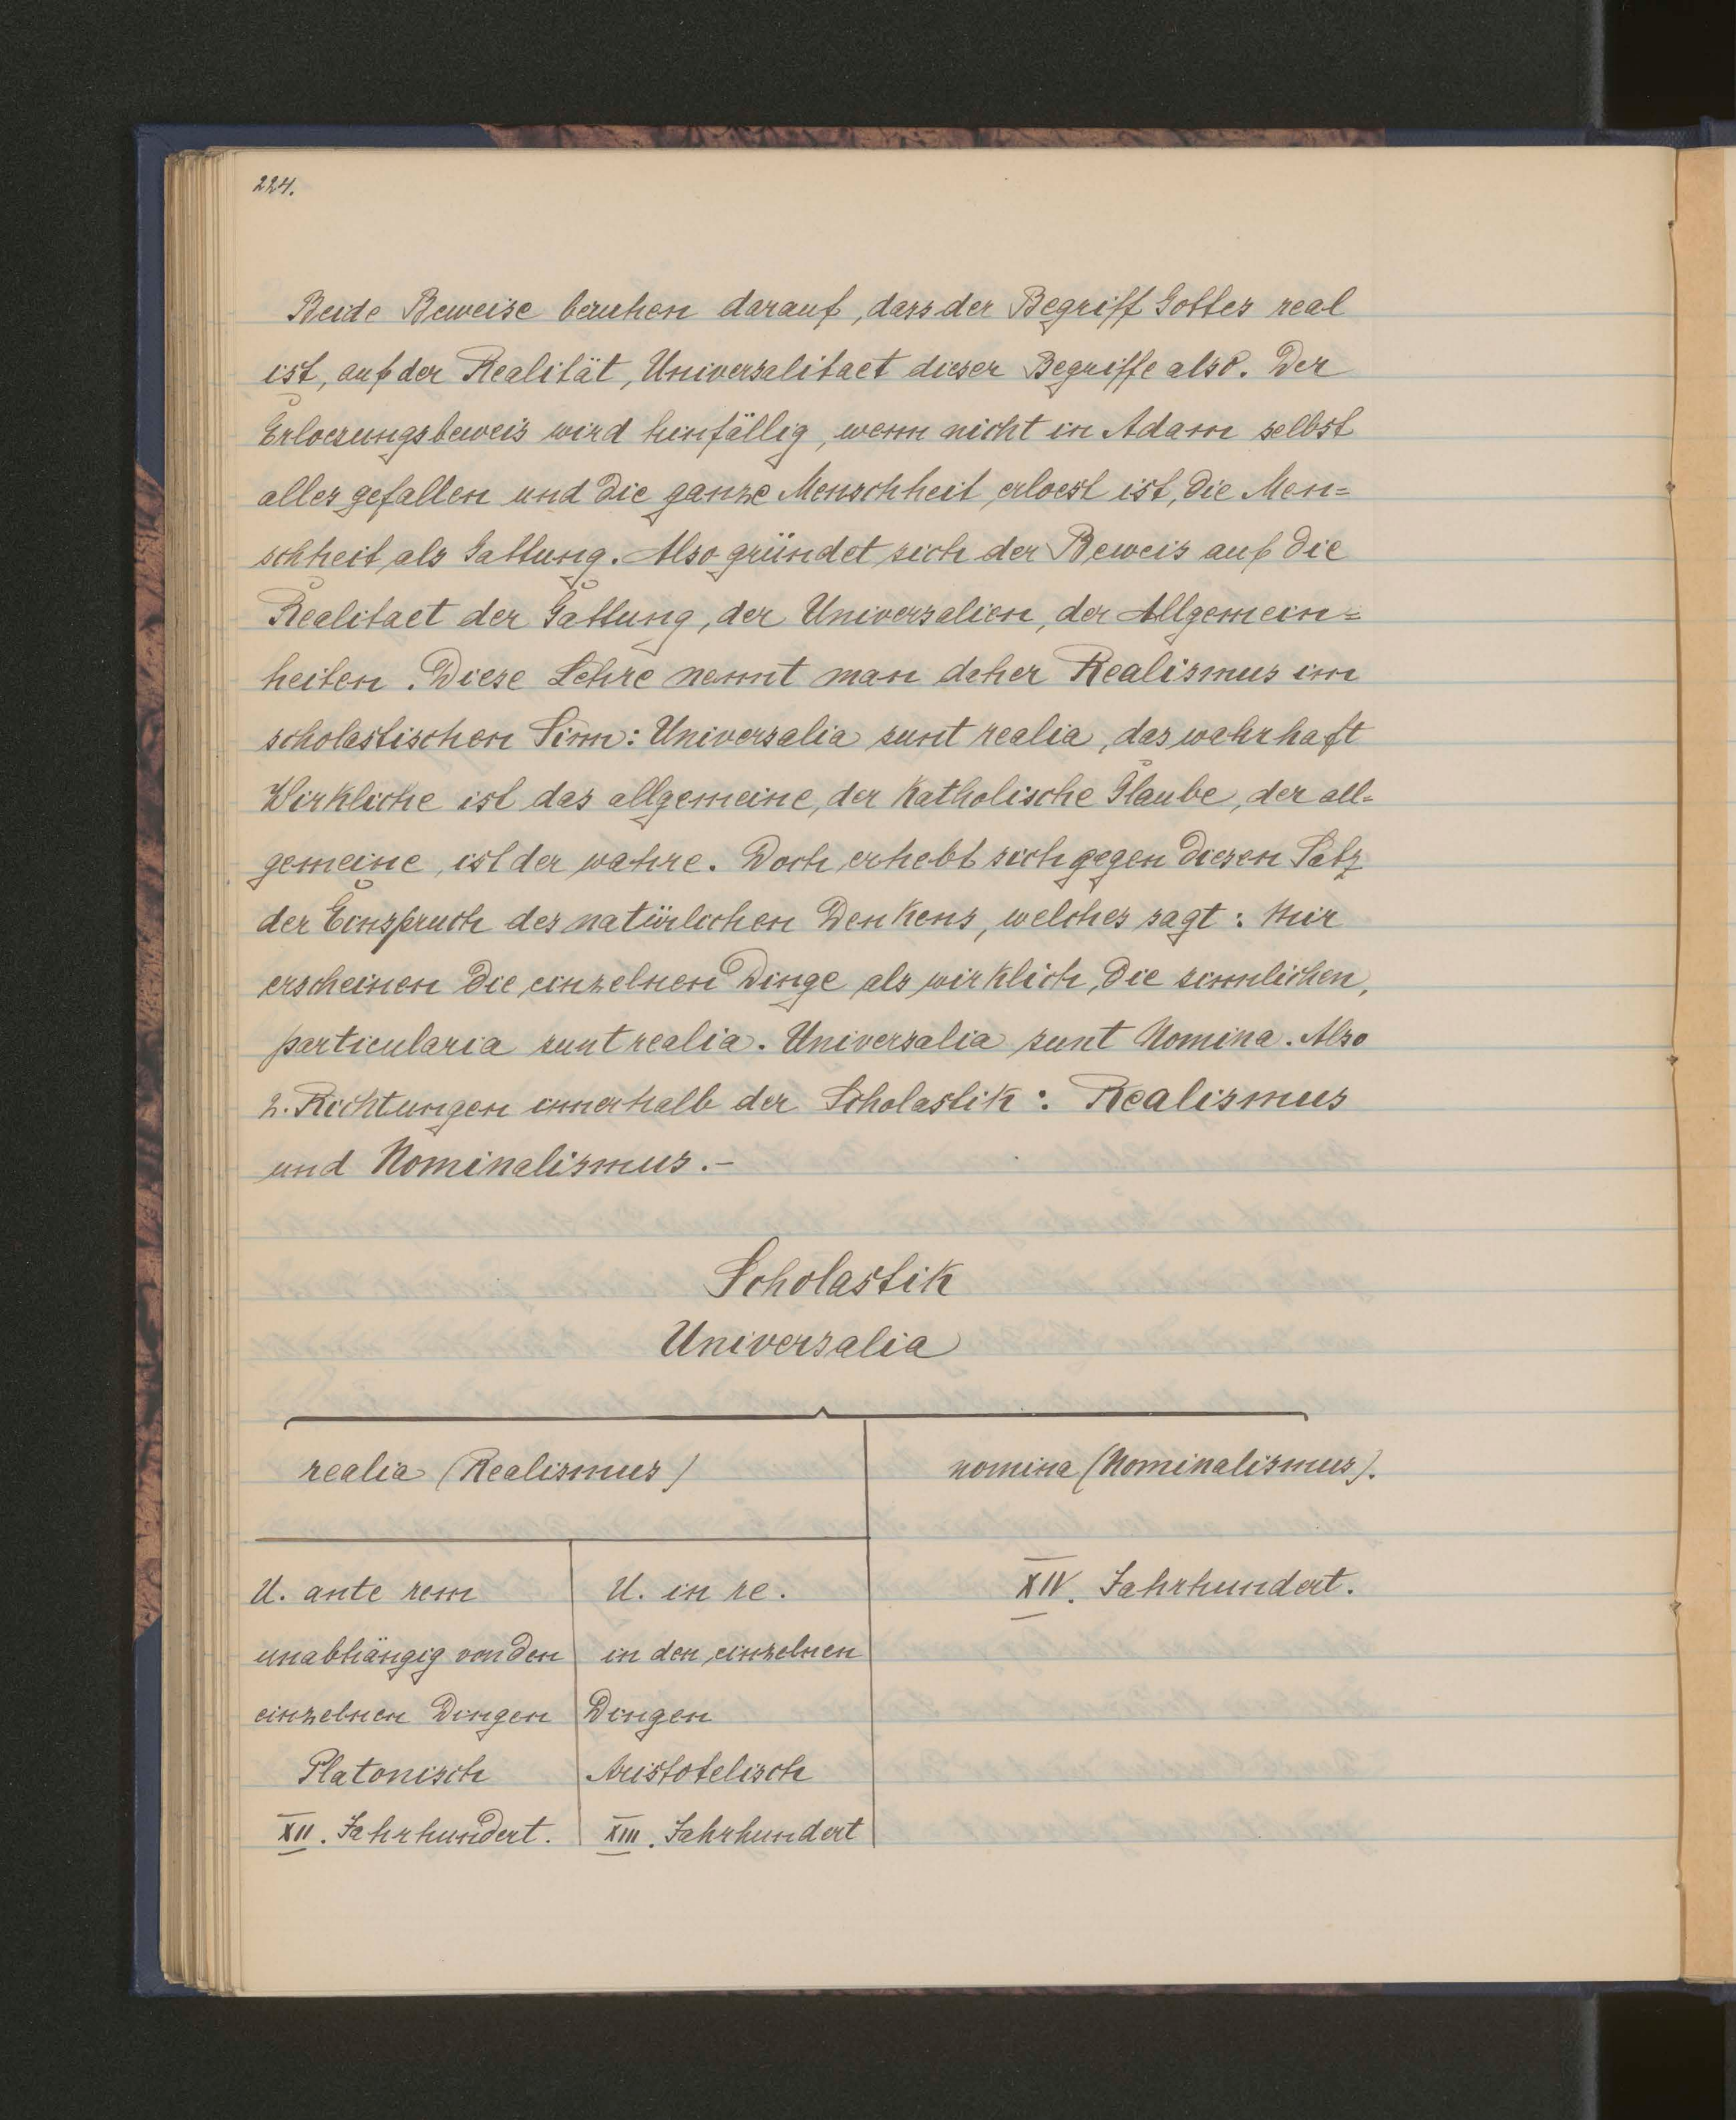 224.
Beide Beweise beruhen darauf, dass der Begriff Gottes real
ist, auf der Realität, Universalitaet dieser Begriffe also. Der
Erloesungsbeweis wird hinfällig, wenn nicht in Adam selbst
alles gefallen und die ganze Menschheit erloest ist, die Men=
schheit als Gattung. Also gründet sich der Beweis auf die
Realitaet der Gattung, der Universalien, der Allgemein=
heiten. Diese Lehre nennt man daher Realismus im
scholastischen Sinn: Universalia sunt realia, das wahrhaft
Wirkliche ist das allgemeine, der Katholische Glaube, der all=
gemeine, ist der wahre. Doch erhebt sich gegen diesen Satz
der Einspruch des natürlichen Denkens, welches sagt: Mir
erscheinen die einzelnen Dinge als wirklich, die sinnlichen,
particularia sunt realia. Universalia sunt Nomina. Also
2. Richtungen innerhalb der Scholastik: Realismus
und Nominalismus.-
Scholastik
Universalia
realia (Realismus) nomina (Nominalismus).
U. ante rem U. in re. XIV. Jahrhundert.
unabhängig von den in den einzelnen
einzelnen Dingen Dingen
Platonisch Aristotelisch
XII. Jahrhundert. XIII. Jahrhundert